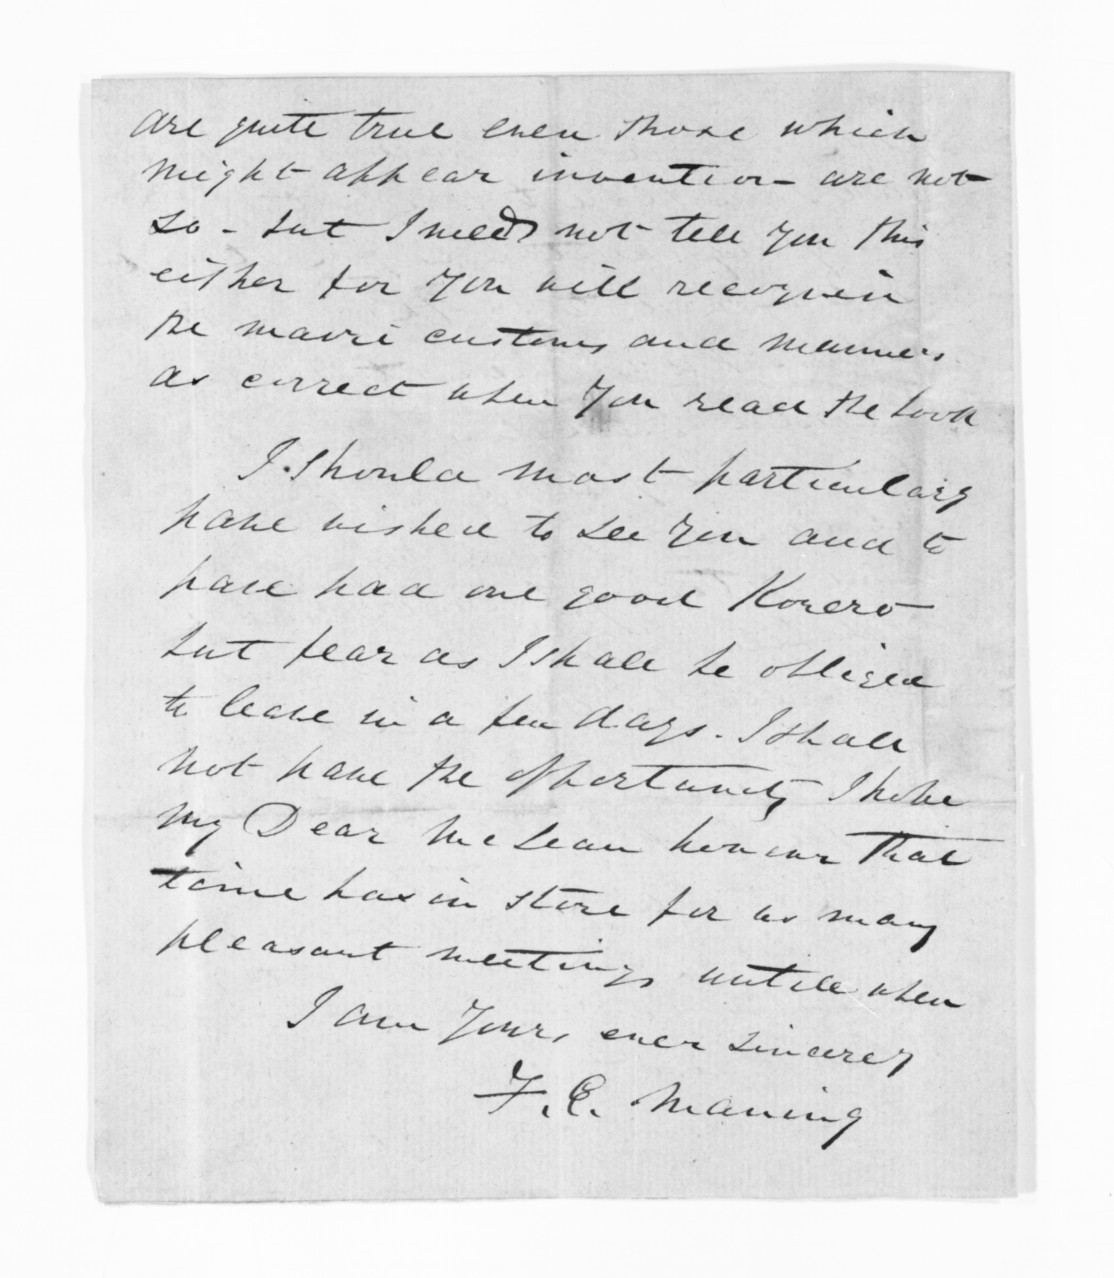 are quite true even those which
might appear invention are not
so - but I need not tell you this
either for you will recognise
the maori customs and manners
as correct when you read the book
I should most particularly
have wished to see you and to
have had one good Korero
but fear as I shall be obliged
to leave in a few days. I shall
not have the opportunity I hope
my Dear McLean however that
time has in store for us many
pleasant meetings untill when
I am yours ever sincerey
F. E. Maning